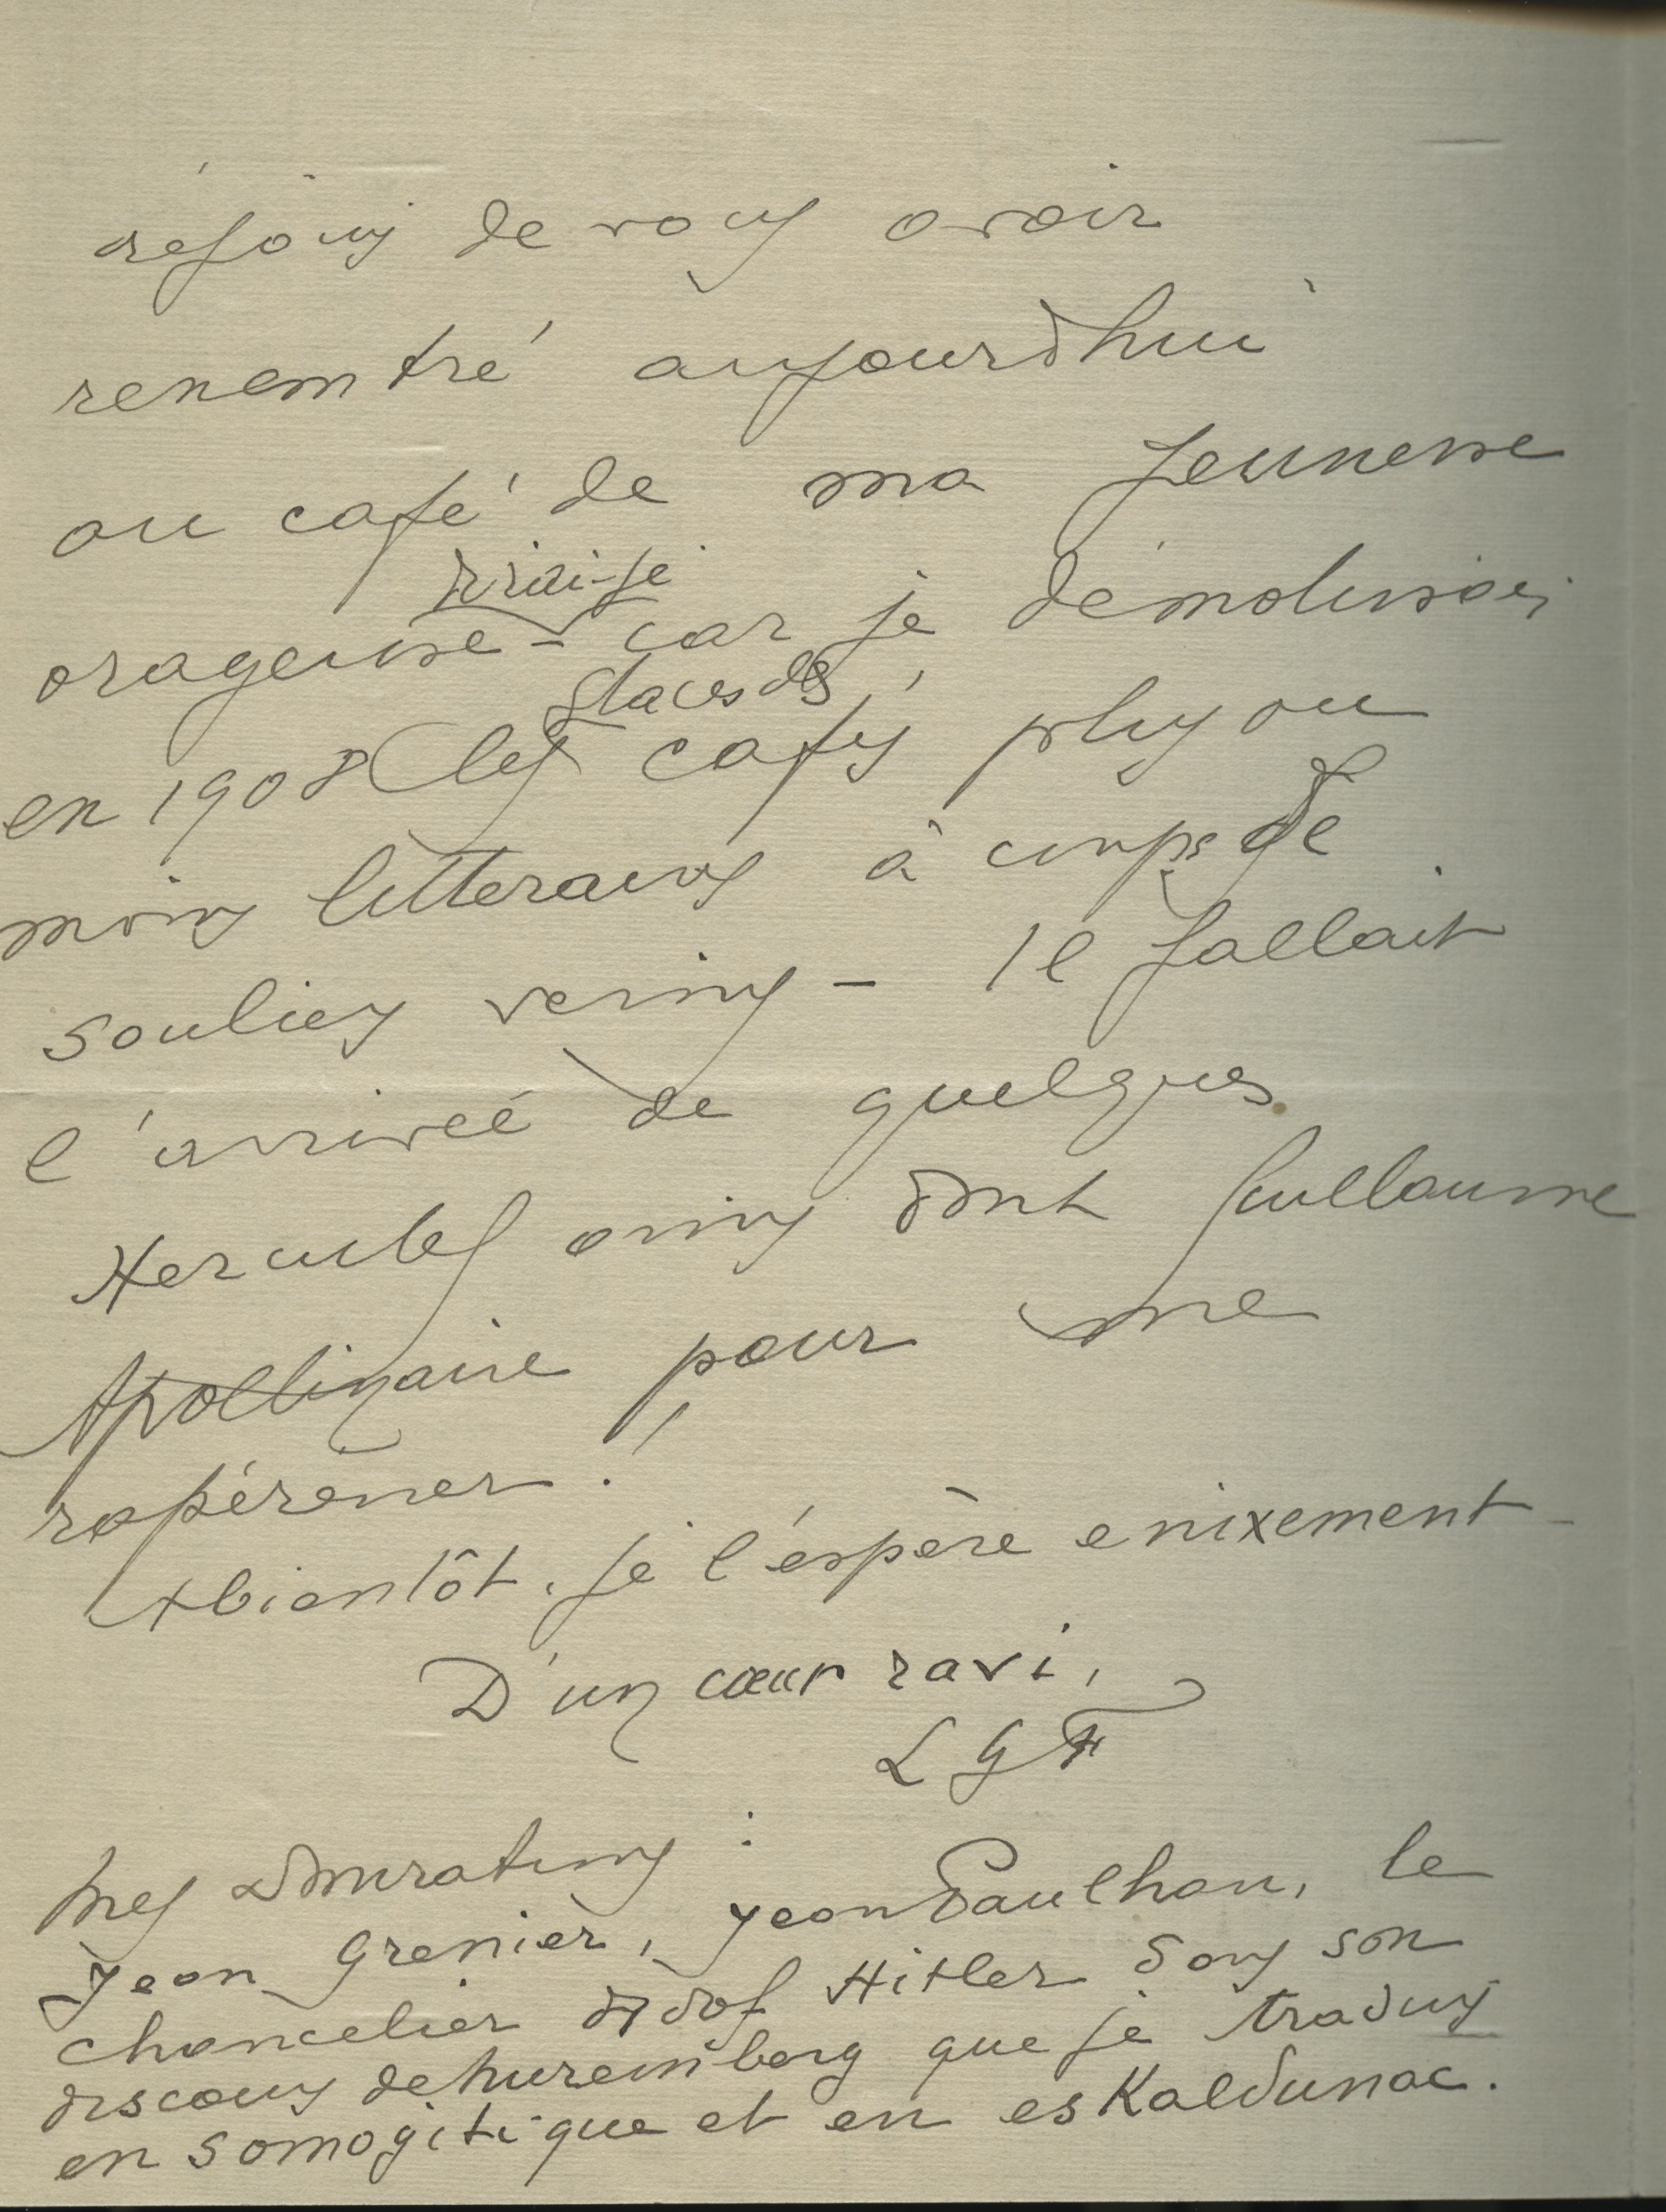 réjouis de vous avoir
rencontré aujourd'hui
au café de ma jeunesse
orageuse - car je démolissais
en 1908 les glaces des cafés plus ou
moins littéraires à coups de
souliers vernis - Il fallait
l'arrivée de quelques
Hercules amis dont Guillaume
Apollinaire pour me
rasséréner !
A bientôt, je l'espère enixement -
D'un cœur ravi,
LGF
Mes admirations :
Jean Grenier, Jean Paulhan, le
chancelier Adolf Hitler dans son
discours de Nuremberg que je traduis
en samogitique et en eskaldunac.